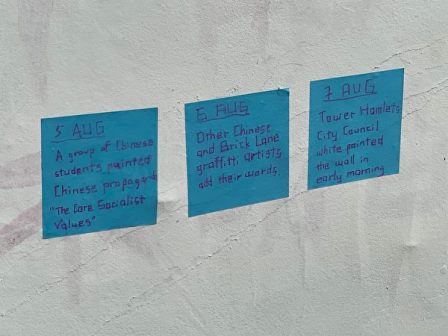 5 AUG
A group of Chinese
students painted
Chinese propaganda
"The Core Socialist
Values"
6 AUG
Other Chinese
and Brick Lane
graffiti artists
add their words.
7 AUG
Tower Hamlets
City Council
white painted
the wall in
early morning